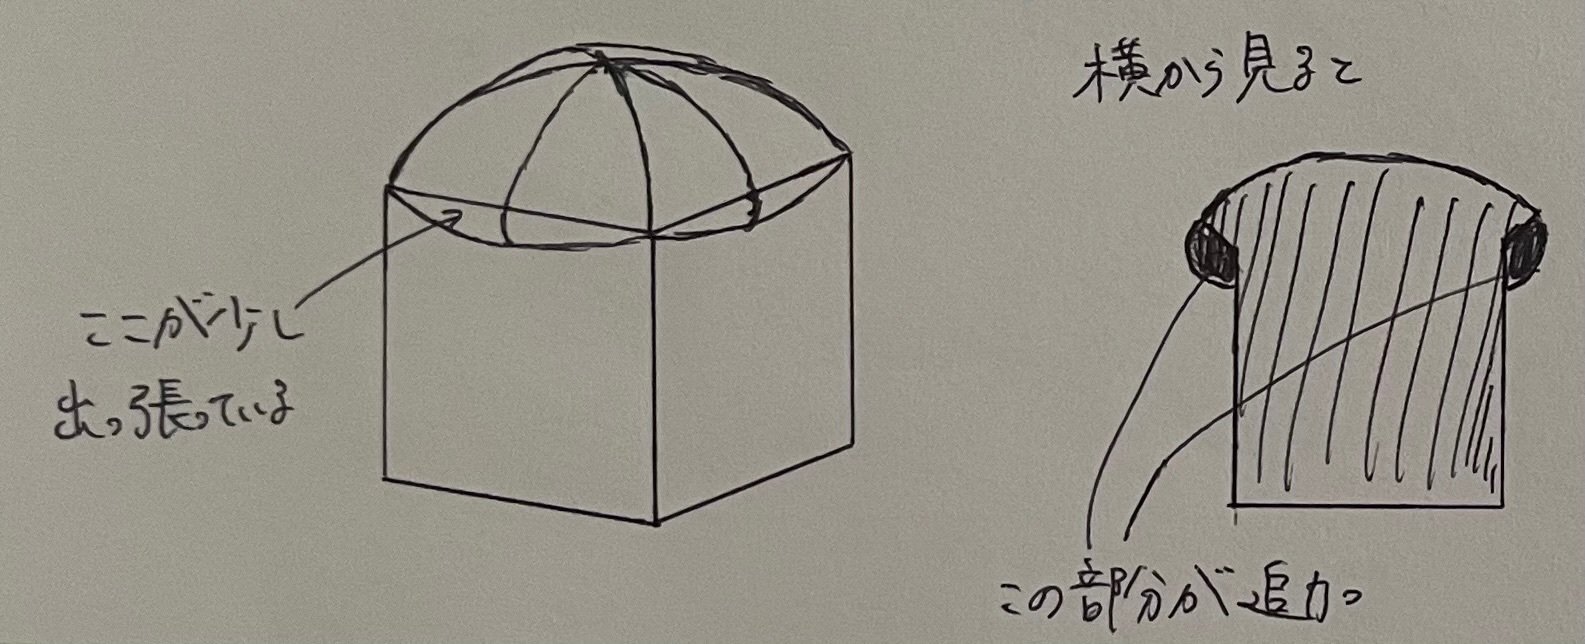 ここが少し
出っ張っている
横から見ると
この部分が追加